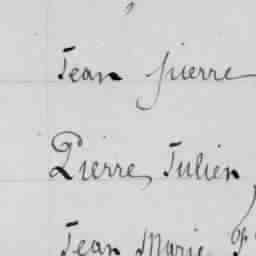 Jean pierre
Pierre, Julien
Jean Marie